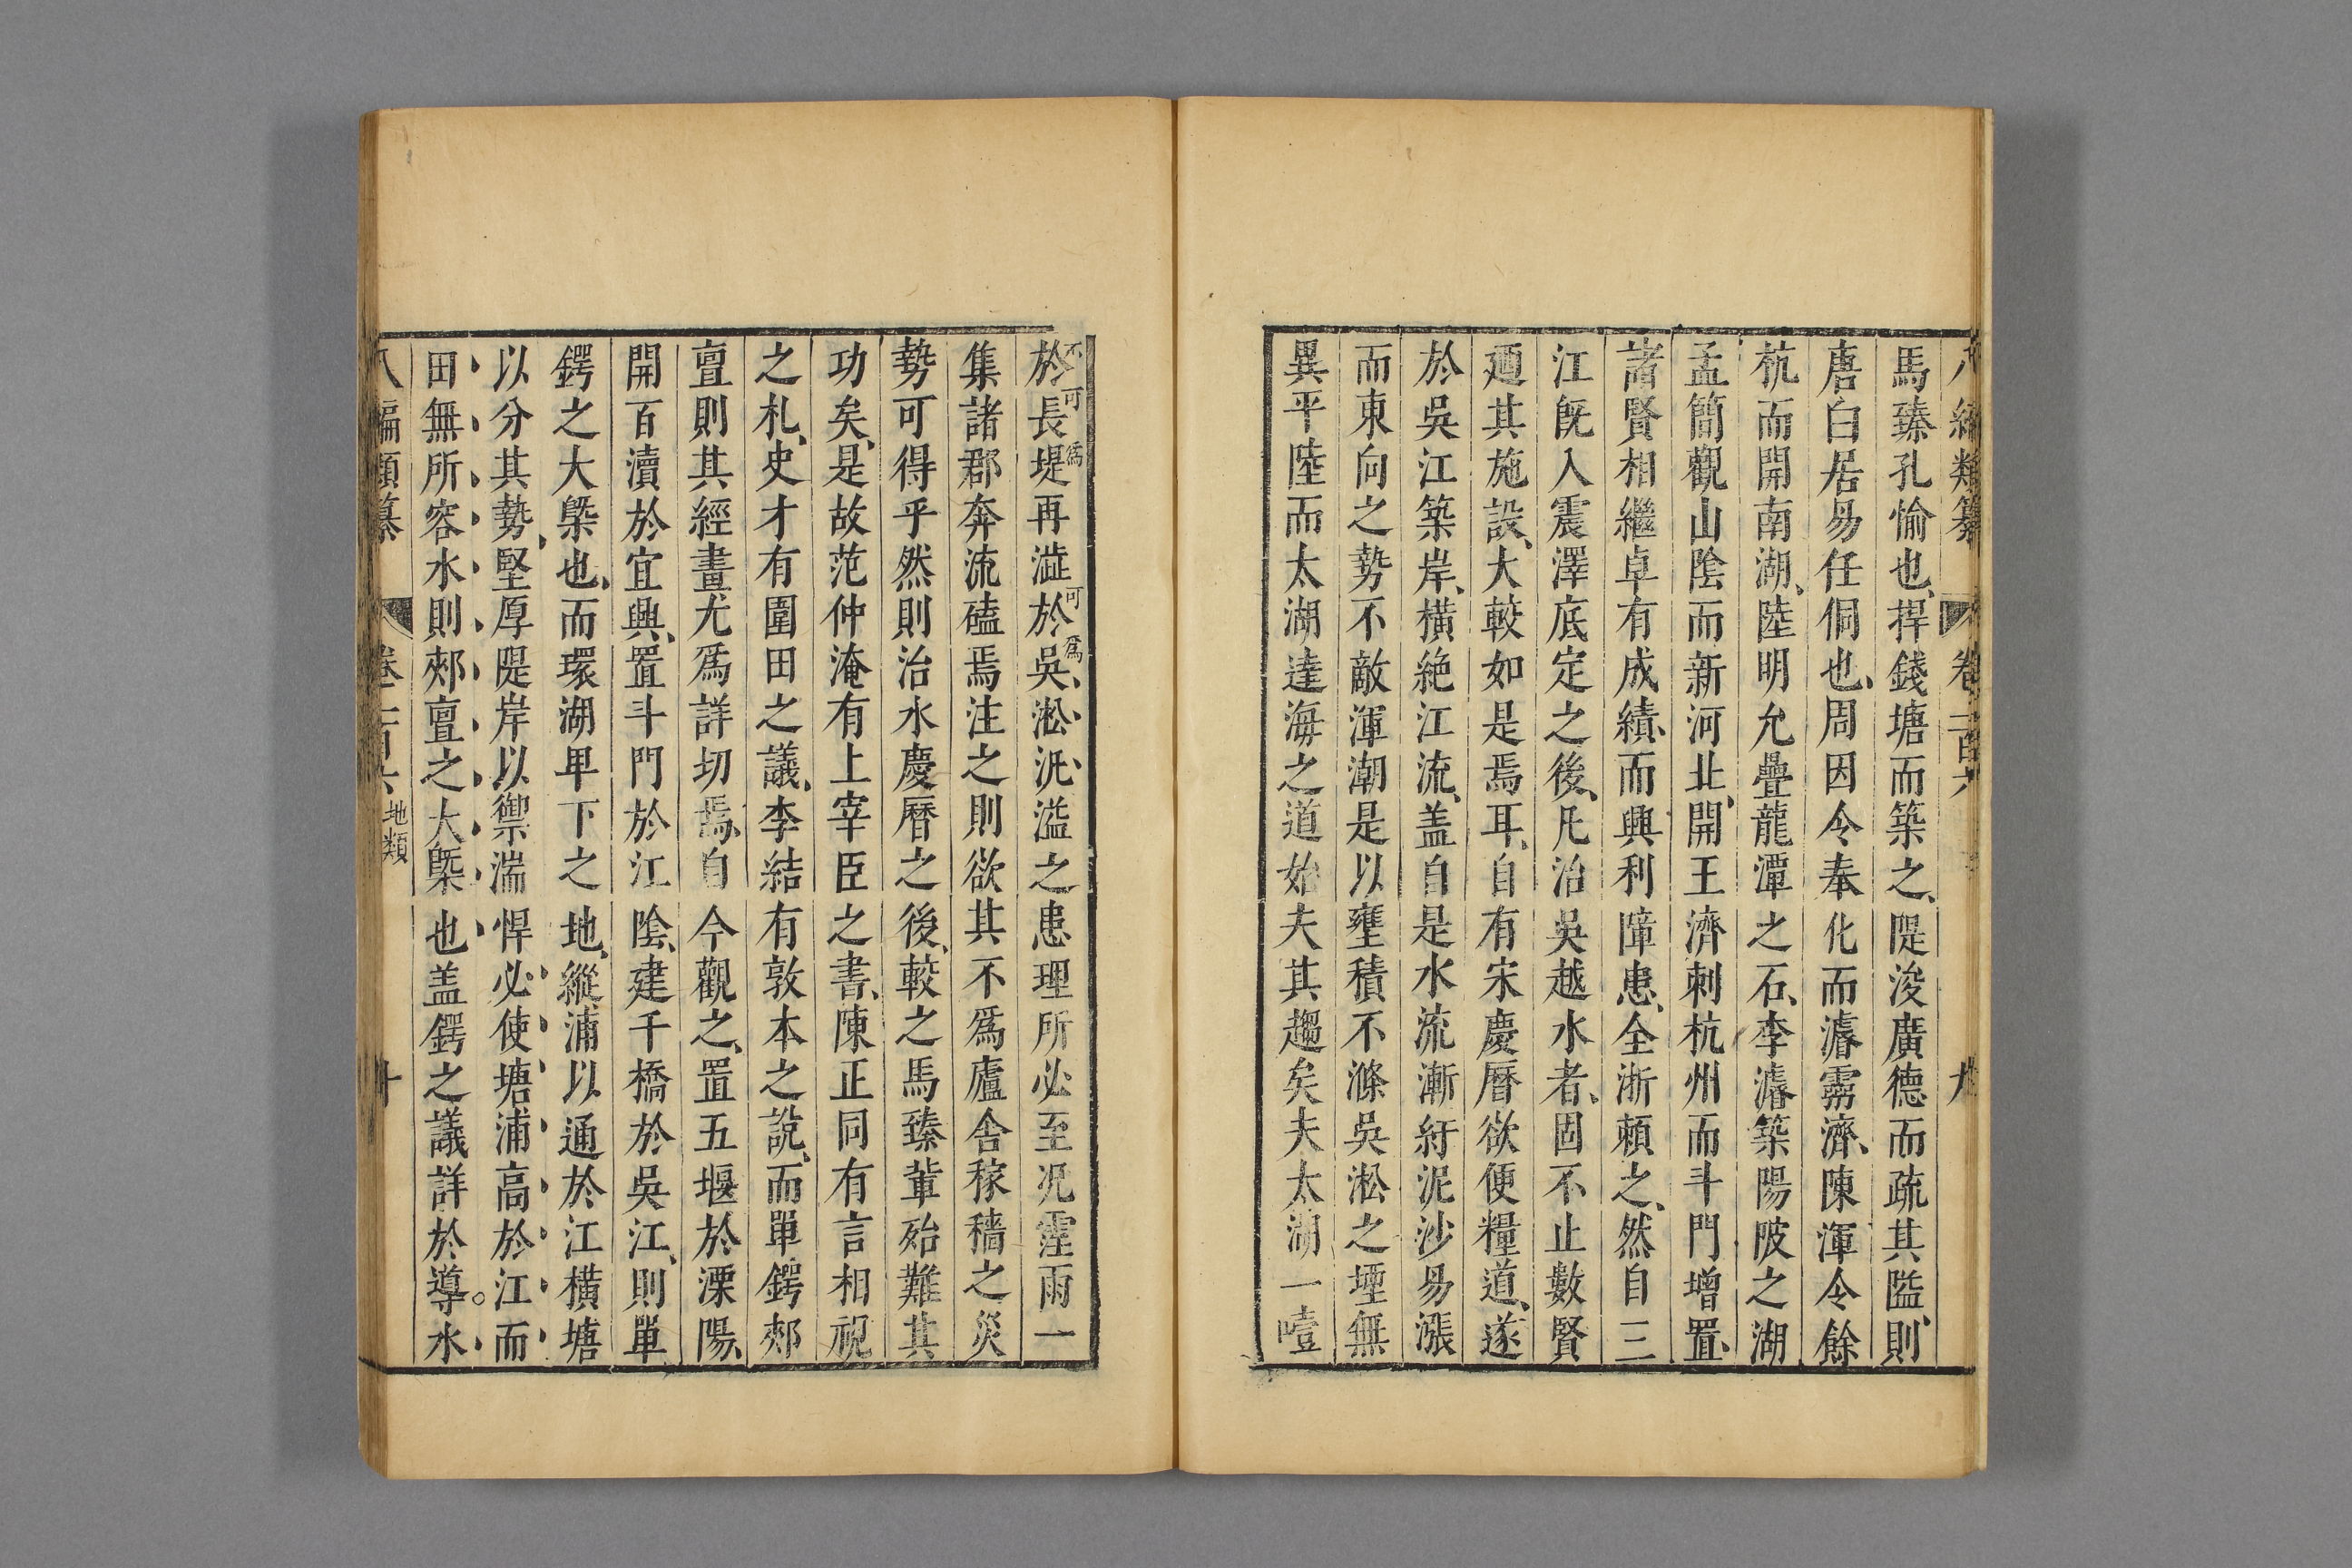 八編類纂　卷二百六　九
馬臻孔愉也、捍錢塘而築之、隄浚廣德而疏其隘、則
唐白居易任侗也、周因令奉化而濬霈濟、陳渾令餘
杭而開南湖、陸明允疊龍潭之石、李濬築陽陂之湖
孟簡觀山陰而新河北、開王濟刺杭州而斗門增置、
諸賢相繼卓有成績、而興利障患、全浙賴之、然自三
江旣入震澤底定之後、凡治吳越水者、固不止數賢
廼其施設、大較如是焉耳、自有宋慶曆欲便糧道、遂
於吳江築岸、橫絶江流、盖自是水流漸紆泥沙易漲
而東向之勢不敵渾潮是以壅積不滌吳淞之堙無
異平陸而太湖達海之道始夫其趨矣夫太湖一噎
不可爲可爲
於長堤再澁於吳淞汎溢之患理所必至况霪雨一
集諸郡奔流磕焉注之則欲其不爲廬舍稼穡之災
勢可得乎然則治水慶曆之後、較之馬臻輩殆難其
功矣、是故范仲淹有上宰臣之書、陳正同有言相視
之札、史才有圍田之議、李結有敦本之說、而單鍔郟
亶則其經畫尤爲詳切焉、自今觀之、置五堰於溧陽、
開百瀆於宜興、置斗門於江陰、建千橋於吳江、則單
鍔之大槩也、而環湖卑下之地、縱浦以通於江橫塘
以分其勢、堅厚隄岸以禦湍悍必使塘浦高於江而
田無所容水則郟亶之大槩也盖鍔之議詳於導水
八編類纂　卷二百六　地類　十